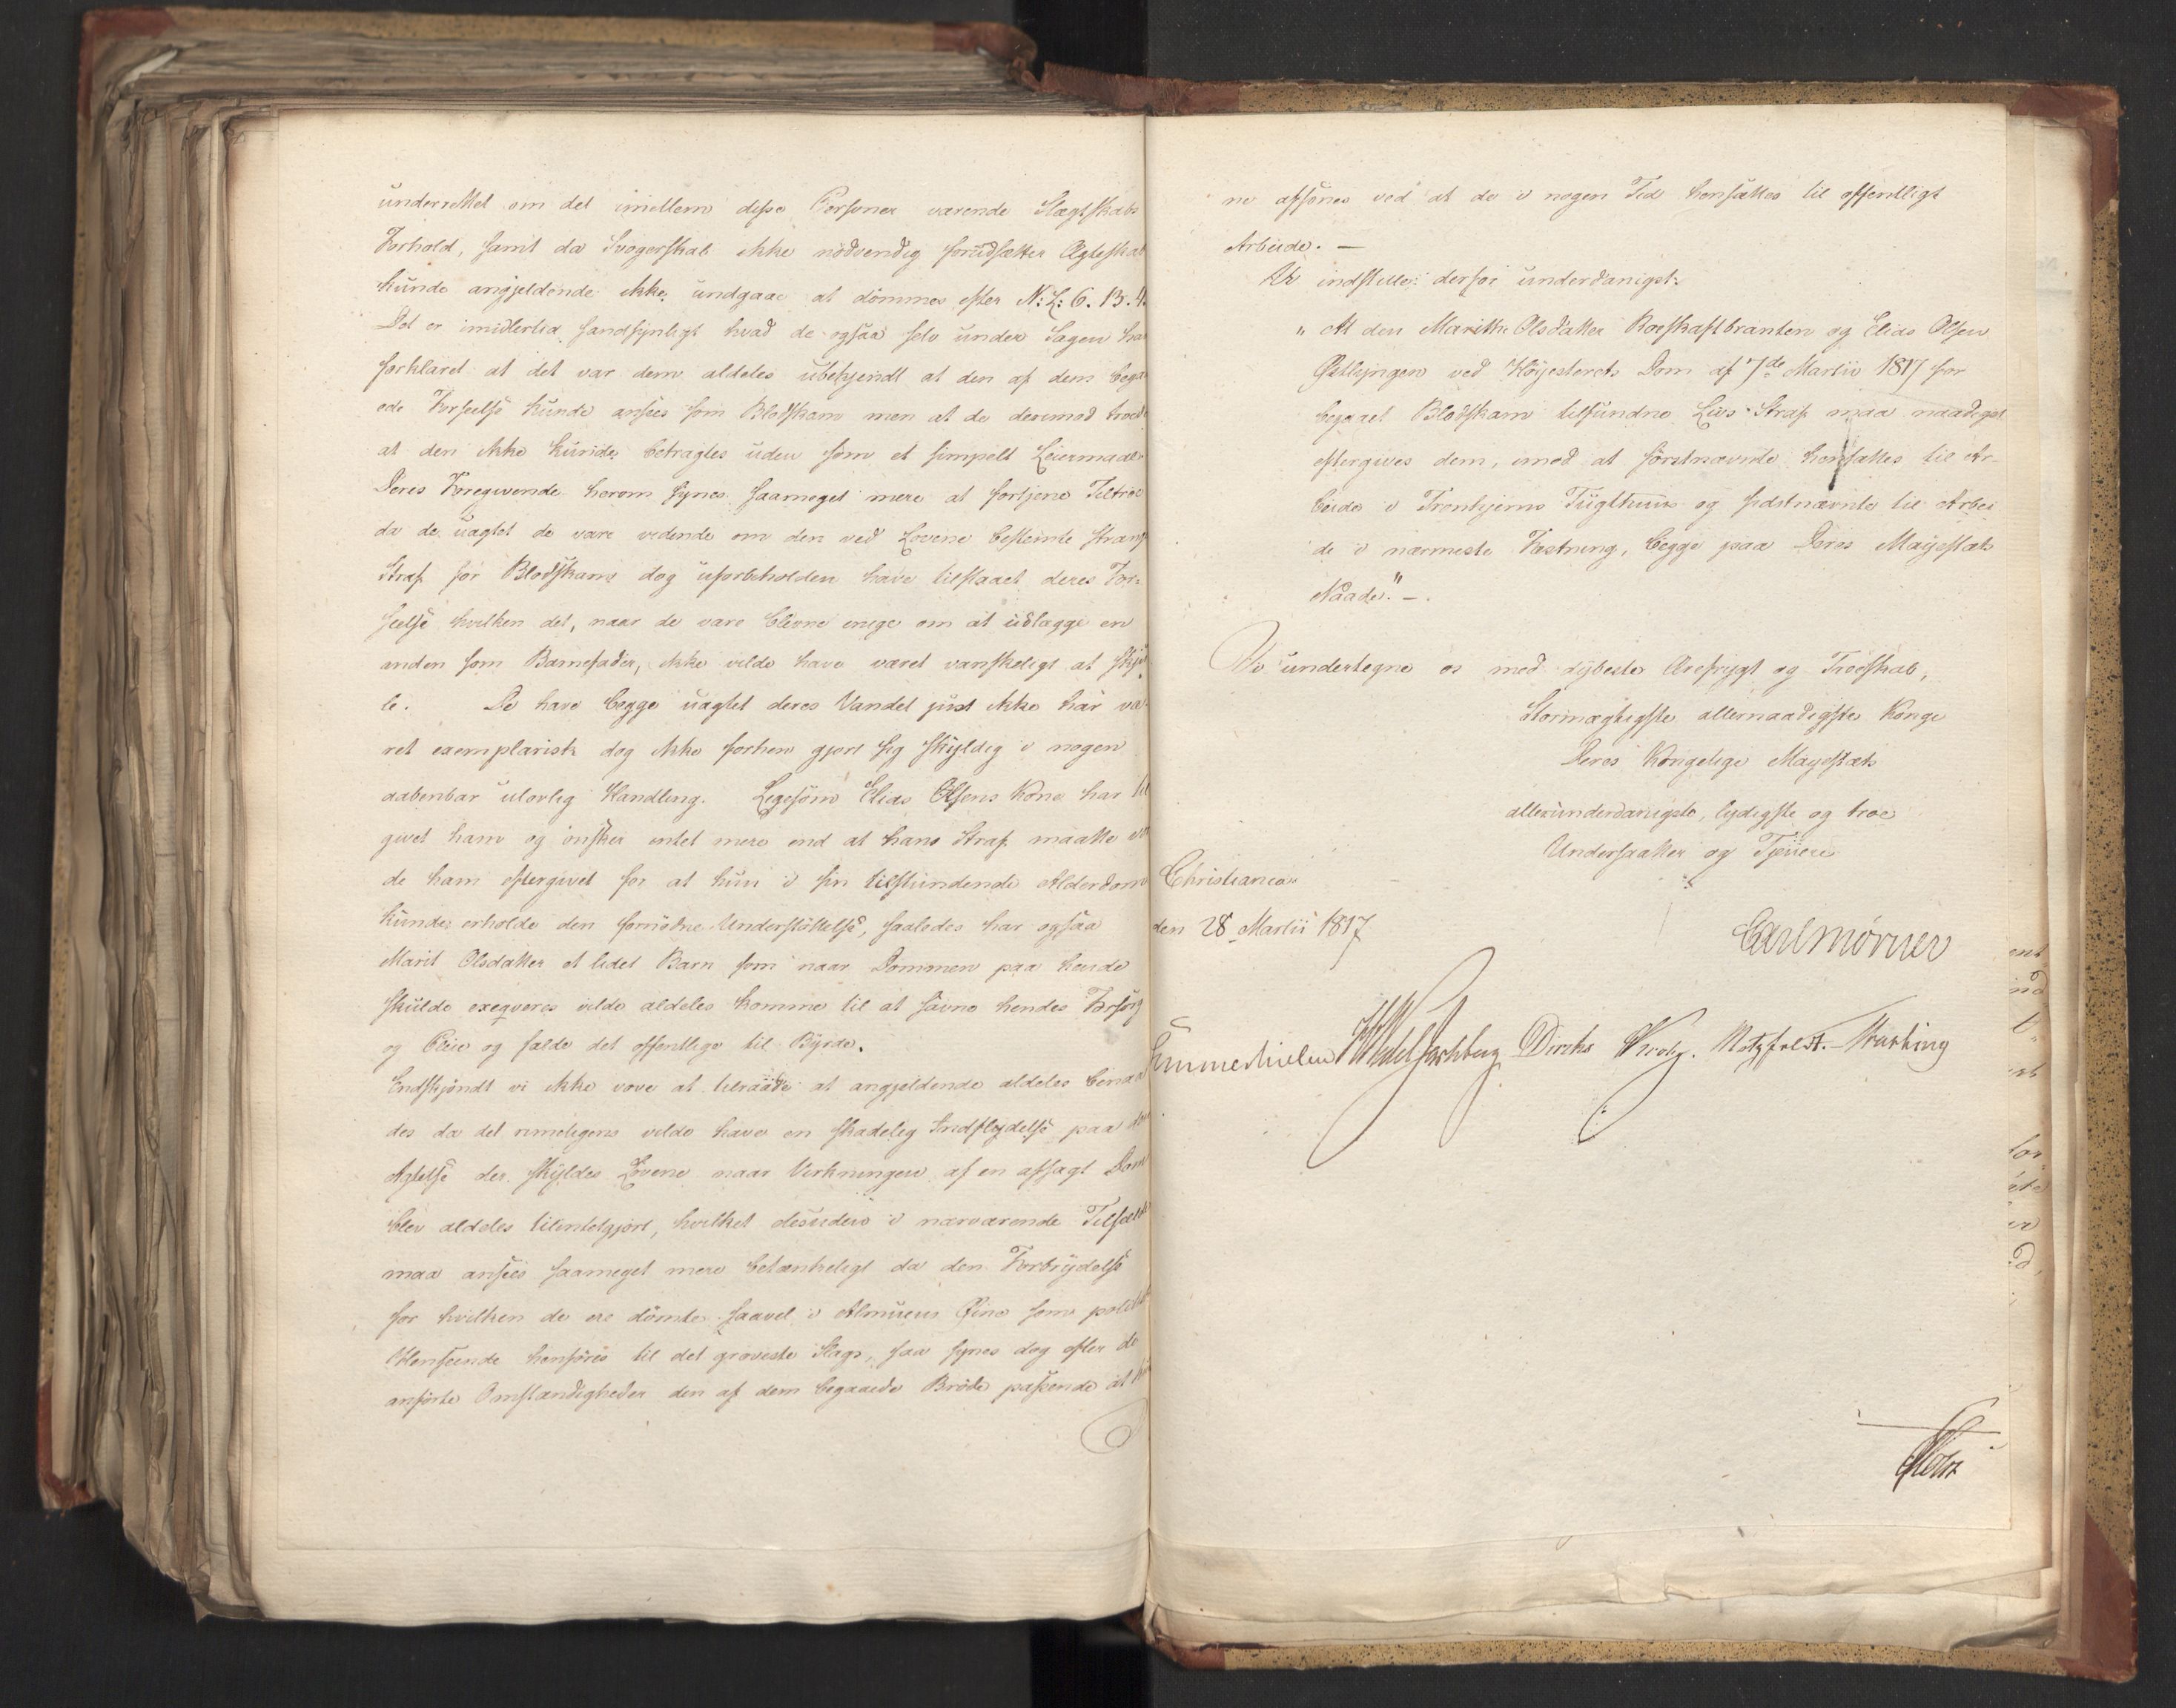 underrettet om det imellem disse Personer værende Slægtskabs
Forhold, samt da Svogerskab ikke nödvendig forudsætter Ægteskab
kunde angjeldende ikke undgaae at dömmes efter N: L: 6. 13. 4.
Det er imidlertid sandsynligt hvad de ogsaa selv under Sagen har
forklaret at det var dem aldeles ubekjendt at den af dem bega-
ede Forseelse kunde ansees som Blodskam men at de derimod troede
at den ikke kunde betragtes uden som et simpelt Leiermaal.
Deres Foregivende herom synes saameget mere at fortjene Tiltroe
da de uagtet de vare vidende om den ved Lovene bestemte strang
Straf for Blodskam dog uforbeholden have tilstaaet deres For-
seelse hvilken det, naar de vare blevne enige om at udlægge en
anden som Barnefader, ikke vilde have været vanskeligt at skju
le. De have begge uagtet deres Vandel just ikke har væ-
ret exemplarisk dog ikke forhen gjort sig skyldig i nogen
aabenbar ulovlig Handling. Ligesom Elias Olsens Kone har til
givet ham og ønsker intet mere end at hans Straf maatte vor
de ham eftergivet for at hun i sin tilstundende Alderdom
kunde erholde den fornødne Understøttelse, saaledes har ogsaa
Marit Olsdatter et lidet Barn som naar Dommen paa hende
skulde exeqveres vilde aldeles komme til at savne hendes Forsörg
og Pleie og falde det offentlige til Byrde.
Endskjöndt vi ikke vove at tilraade at angjeldende aldeles benaa
des da det rimeligens vilde have en skadelig Indflydelse paa den
Agtelse der skyldes Lovene naar Virkningen af en afsagt Dom
blev aldeles tilintetgjort, hvilket desuden i nærværende Tilfælde
maa ansees saameget mere betænkeligt da den Forbrydelse
for hvilken de ere dömte saavel i Almuens Øine som politisk
Henseende henföres til det groveste Slags, saa synes dog efter de
anförte Omstændigheder den af dem begaaede Bröde passende at kun
ne afsones ved at de i nogen Tid hensættes til offentligt
Arbeide. —
Vi indstille derfor underdanigst:
" At den Marithe Olsdatter Roeskaftbranten og Elias Olsen
Østlyngen ved Höyesterets Dom af 7de Martii 1817 for
begaaet Blodskam tilfundne Livs-Straf maa naadigst
eftergives dem, imod at förstnævnte hensættes til Ar-
beide i Tronhjems Tugthuus og sidstnævnte til Arbei
de i nærmeste Fæstning, begge paa Deres Mayestæts
Naade." —.
Vi undertegne os med dybeste Ærefrygt og Troeskab,
Stormægtigste allernaadigste Konge
Deres Kongelige Mayestæts
allerunderdanigste, lydigste og troe
Undersaatter og Tjenere
Christiania
den 28 Martii 1817
Carl Mörner
Sommerhielm HWedel Jarlsberg Diriks Krohg. Motzfeldt.
Holst